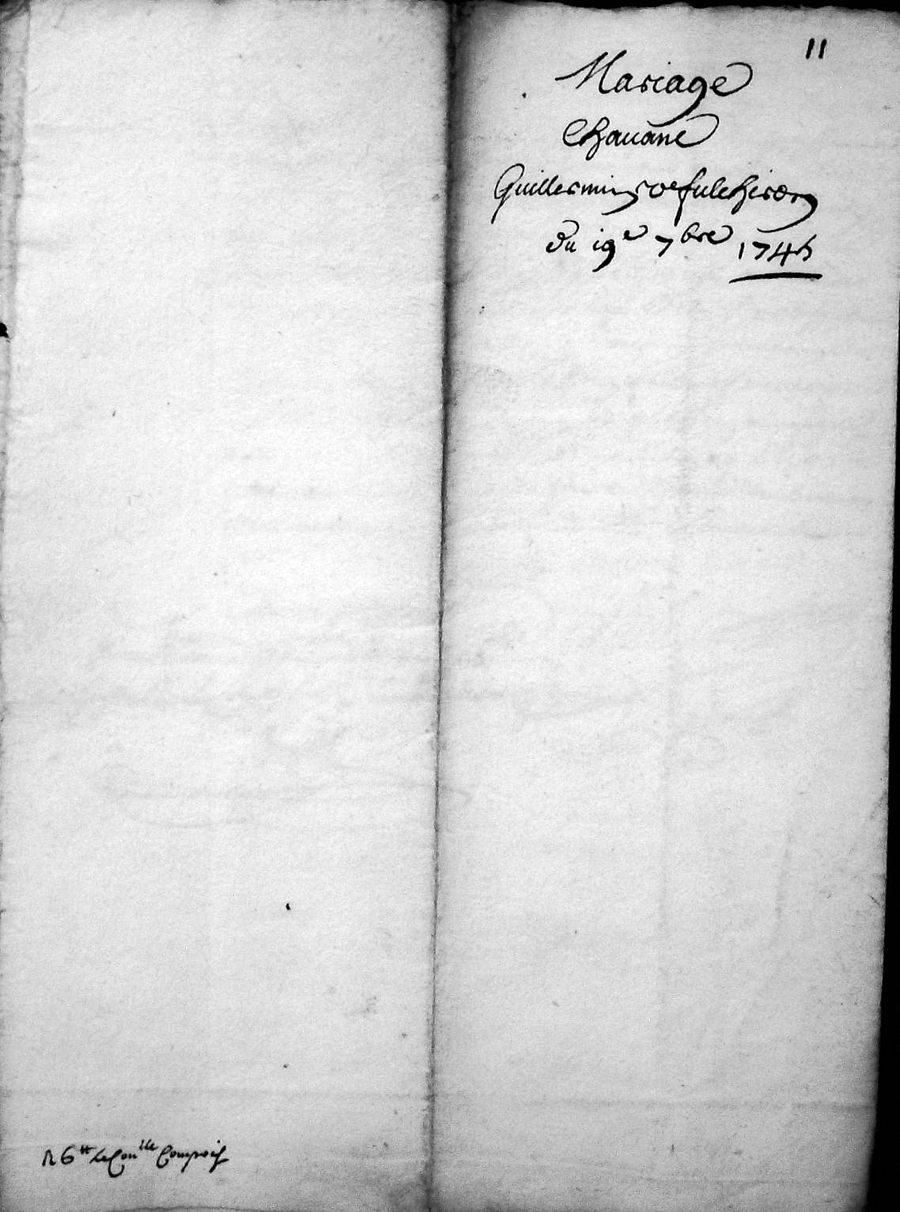 11
Mariage
Chavane
Guillermin ve fulchiron
du 19e 7bre 1745
R 6tt le Conlle Compris